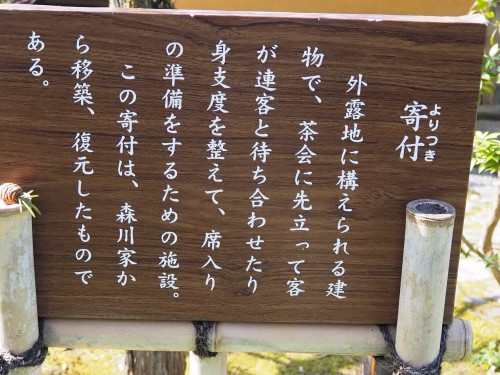 寄付
よりつき
外露地に構えられる建
物で、茶会に先立って客
が連客と待ち合わせたり
身支度を整えて、席入り
の準備をするための施設。
この寄付は、森川家か
ら移築、復元したもので
ある。